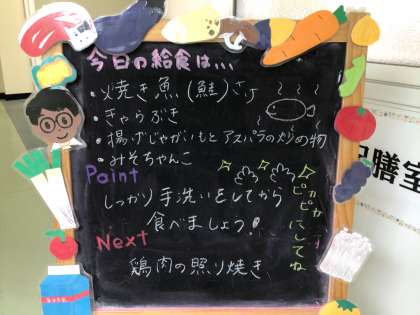 今日の給食は...
・焼き魚(鮭)さけ
・きゃらぶき
・揚げじゃがいもとアスパラの炒め物
・みそちゃんこ
Point
しっかり手洗いをしてから
食べましょう!
ピカピカにしてね
Next
鶏肉の照り焼き
配膳室